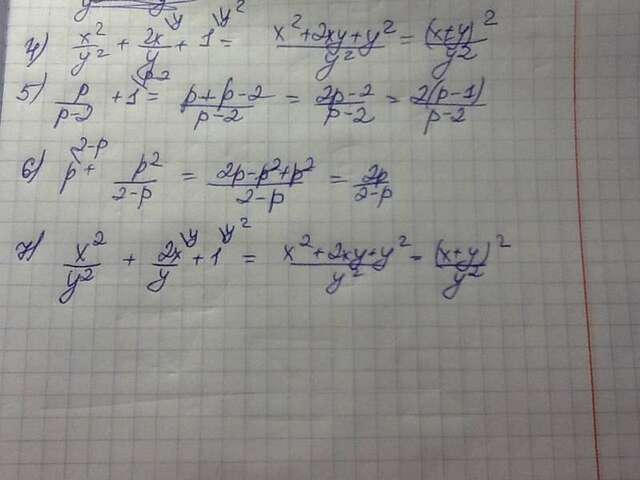 4) x²/y² + 2x\y/y + 1\y² = (x²+2xy+y²)/y² = (x+y)²/y²
5) p/(p-2) + 1\p-2 = (p+p-2)/(p-2) = (2p-2)/(p-2) = 2(p-1)/(p-2)
6) p\2-p + p²/(2-p) = (2p-p²+p²)/(2-p) = 2p/(2-p)
7) x²/y² + 2x\y/y + 1\y² = (x²+2xy+y²)/y² - (x+y)²/y²